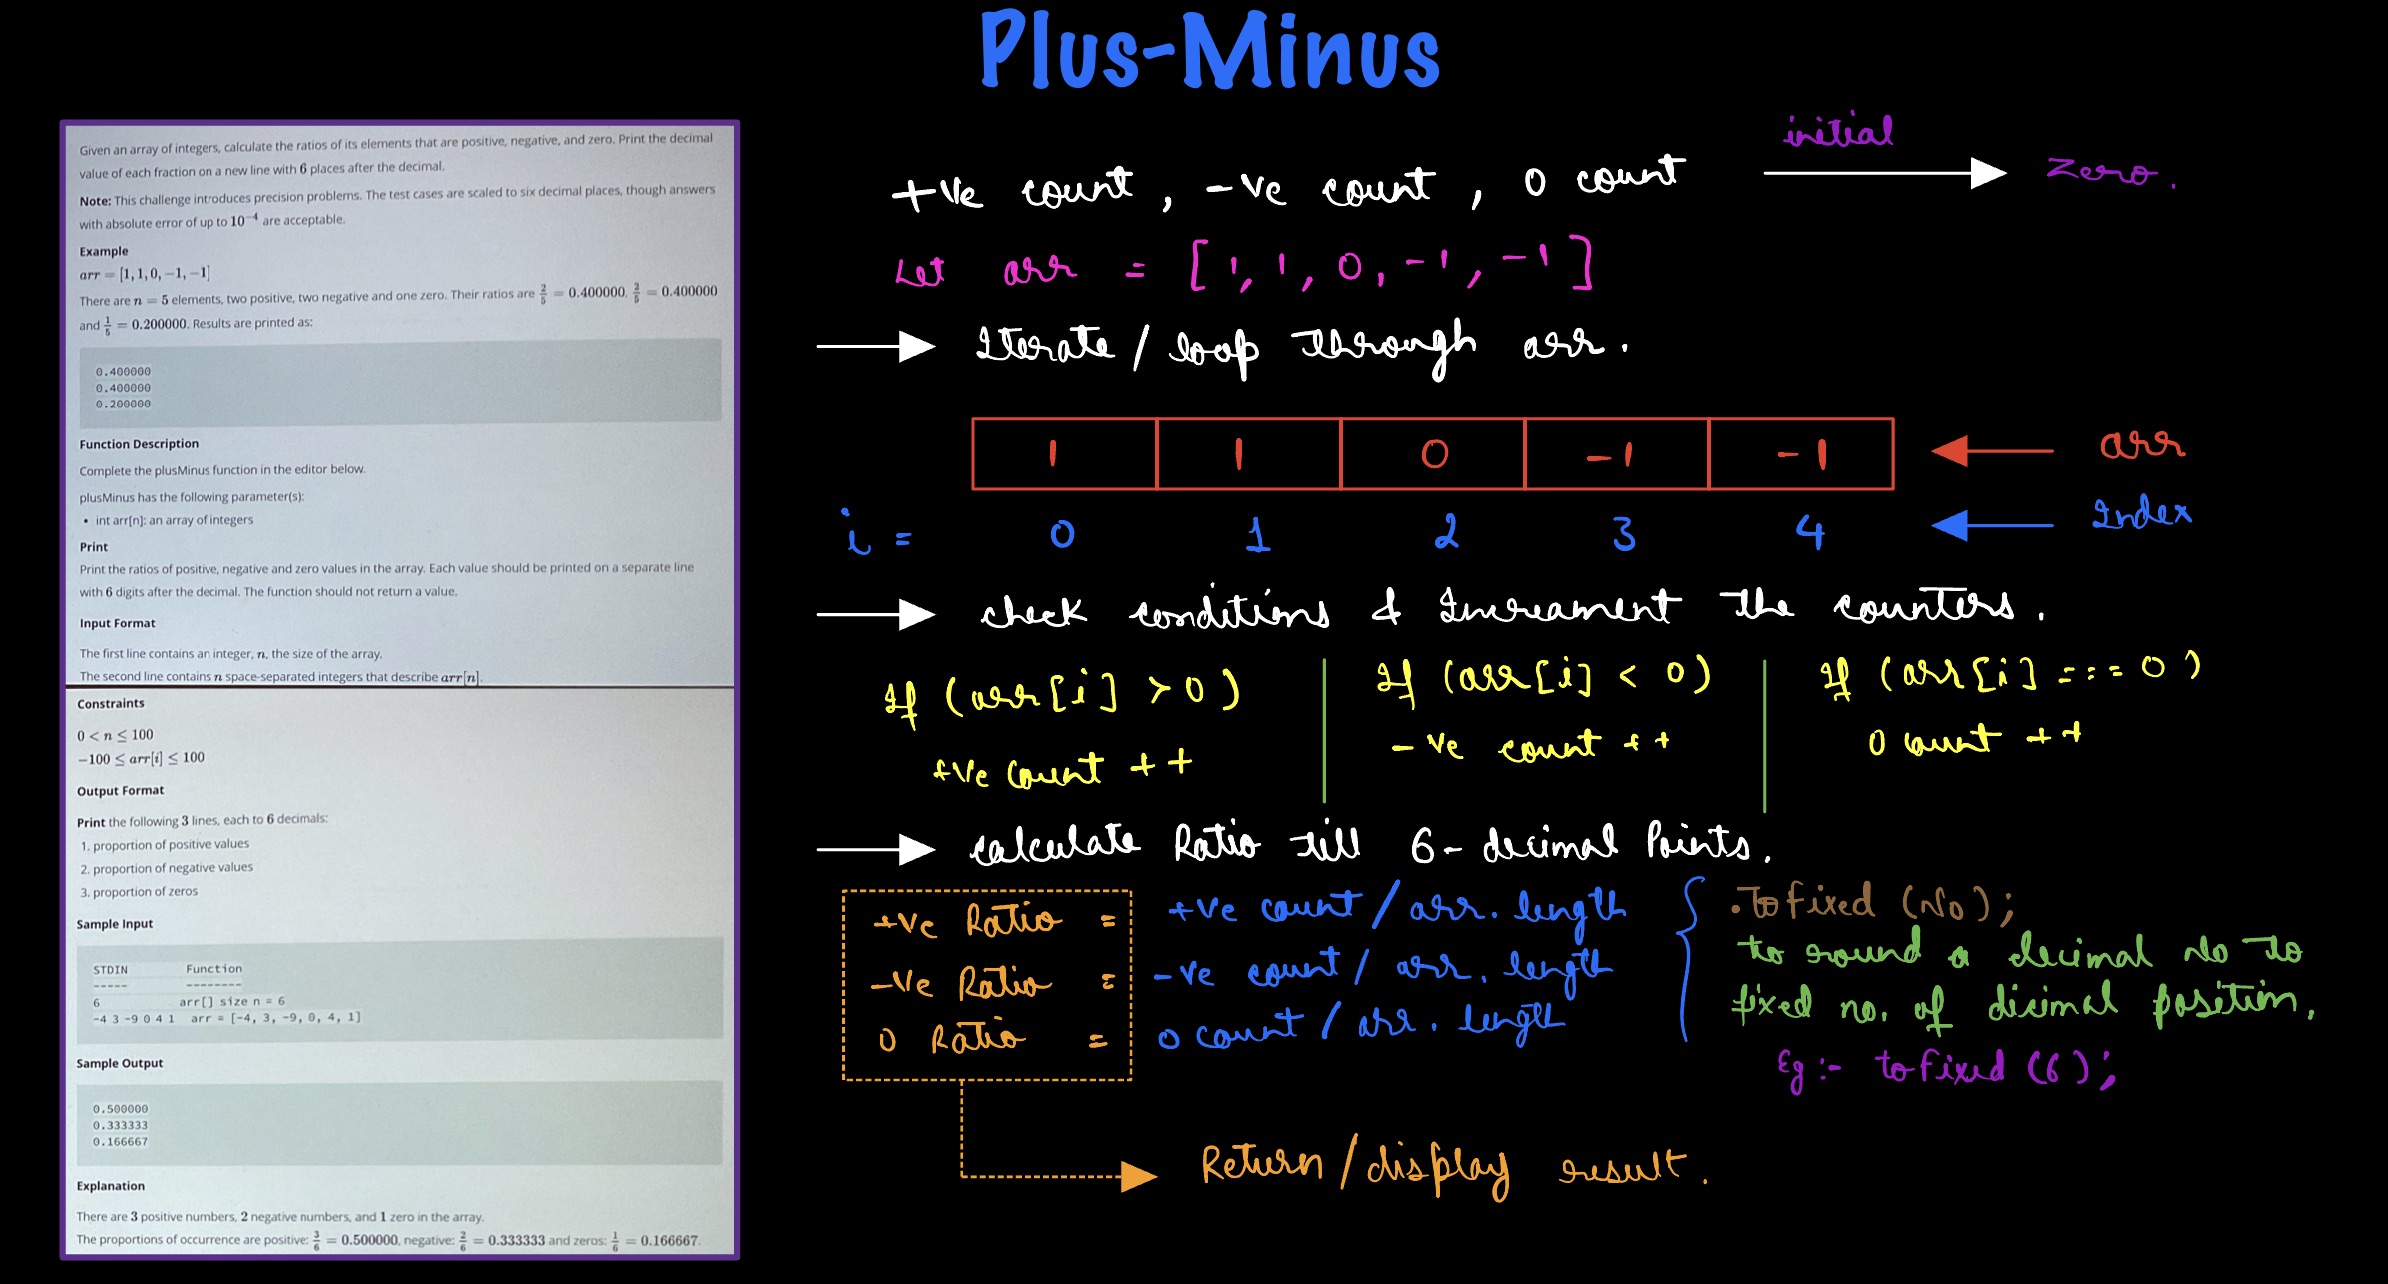 Plus-Minus
Given an array of integers, calculate the ratios of its elements that are positive, negative, and zero. Print the decimal
value of each fraction on a new line with 6 places after the decimal.
Note: This challenge introduces precision problems. The test cases are scaled to six decimal places, though answers
with absolute error of up to 10⁻⁴ are acceptable.
Example
arr = [1, 1, 0, −1, −1]
There are n = 5 elements, two positive, two negative and one zero. Their ratios are 2/5 = 0.400000, 2/5 = 0.400000
and 1/5 = 0.200000. Results are printed as:
0.400000
0.400000
0.200000
Function Description
Complete the plusMinus function in the editor below.
plusMinus has the following parameter(s):
• int arr[n]: an array of integers
Print
Print the ratios of positive, negative and zero values in the array. Each value should be printed on a separate line
with 6 digits after the decimal. The function should not return a value.
Input Format
The first line contains an integer, n, the size of the array.
The second line contains n space-separated integers that describe arr[n].
Constraints
0 < n ≤ 100
−100 ≤ arr[i] ≤ 100
Output Format
Print the following 3 lines, each to 6 decimals:
1. proportion of positive values
2. proportion of negative values
3. proportion of zeros
Sample Input
STDIN Function
----- --------
6 arr[] size n = 6
-4 3 -9 0 4 1 arr = [-4, 3, -9, 0, 4, 1]
Sample Output
0.500000
0.333333
0.166667
Explanation
There are 3 positive numbers, 2 negative numbers, and 1 zero in the array.
The proportions of occurrence are positive: 3/6 = 0.500000, negative: 2/6 = 0.333333 and zeros: 1/6 = 0.166667.
+ve count, -ve count, 0 count initial Zero.
Let arr = [1, 1, 0, -1, -1]
Iterate / loop through arr.
1 1 0 -1 -1 arr
i = 0 1 2 3 4 Index
check conditions & Increament the counters.
If (arr[i] > 0)
+ve count ++
If (arr[i] < 0)
-ve count ++
If (arr[i] === 0)
0 count ++
calculate Ratio till 6-decimal Points.
+ve Ratio = +ve count / arr.length
-ve Ratio = -ve count / arr.length
0 Ratio = 0 count / arr.length
.Tofixed (No);
to round a decimal No to
fixed no. of dicimal position.
Eg :- tofixed (6);
Return / display result.